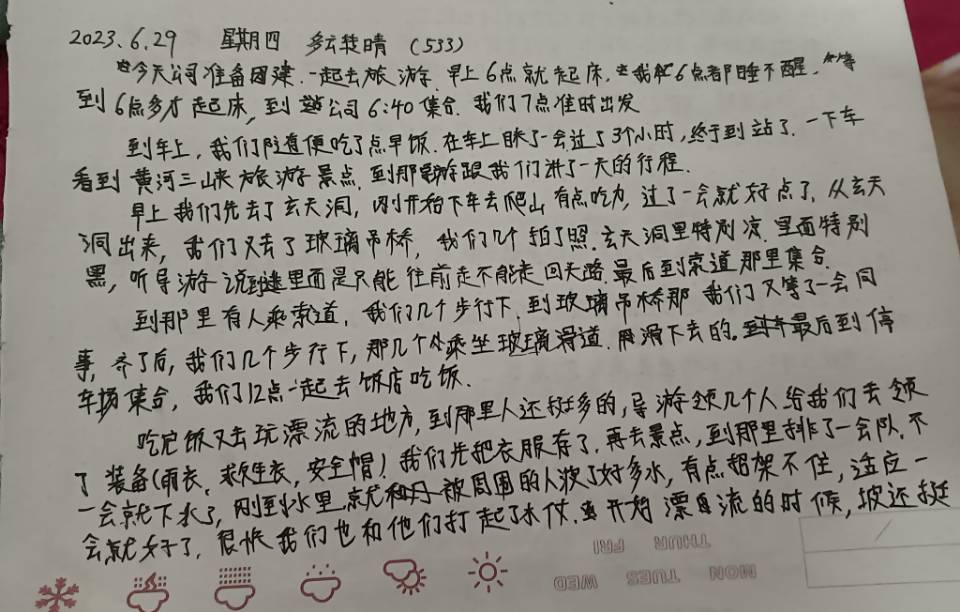 2023.6.29 星期四 多云转晴 (533)
今天公司准备团建.一起去旅游.早上6点就起床,我都6点都睡不醒.等
到6点多才起床,到公司6:40集合.我们7点准时出发
到车上,我们随便吃了点早饭.在车上眯了一会过了3个小时,终于到站了.一下车
看到黄河三峡旅游景点.到那导游跟我们讲了一天的行程.
早上我们先去了玄天洞,刚开始下车去爬山有点吃力,过了一会就好点了,从玄天
洞出来,我们又去了玻璃吊桥,我们几个拍了照.玄天洞里特别凉.里面特别
黑,听导游说到里面是只能往前走不能走回头路.最后到索道那里集合.
到那里有人乘索道,我们几个步行下.到玻璃吊桥那我们又等了一会同
事,齐了后,我们几个步行下,那几个乘坐玻璃滑道.滑下去的。最后到停
车场集合,我们12点一起去饭店吃饭.
吃完饭又去玩漂流的地方,到那里人还挺多的,导游领几个人给我们去领
了装备(雨衣,救生衣,安全帽)我们先把衣服存了.再去景点,到那里排了一会队.不
一会就下水了,刚到水里.就被周围的人泼了好多水,有点招架不住,适应一
会就好了,很快我们也和他们打起了水仗.开始漂流的时候,坡还挺
THUR FRI
MON TUES WED